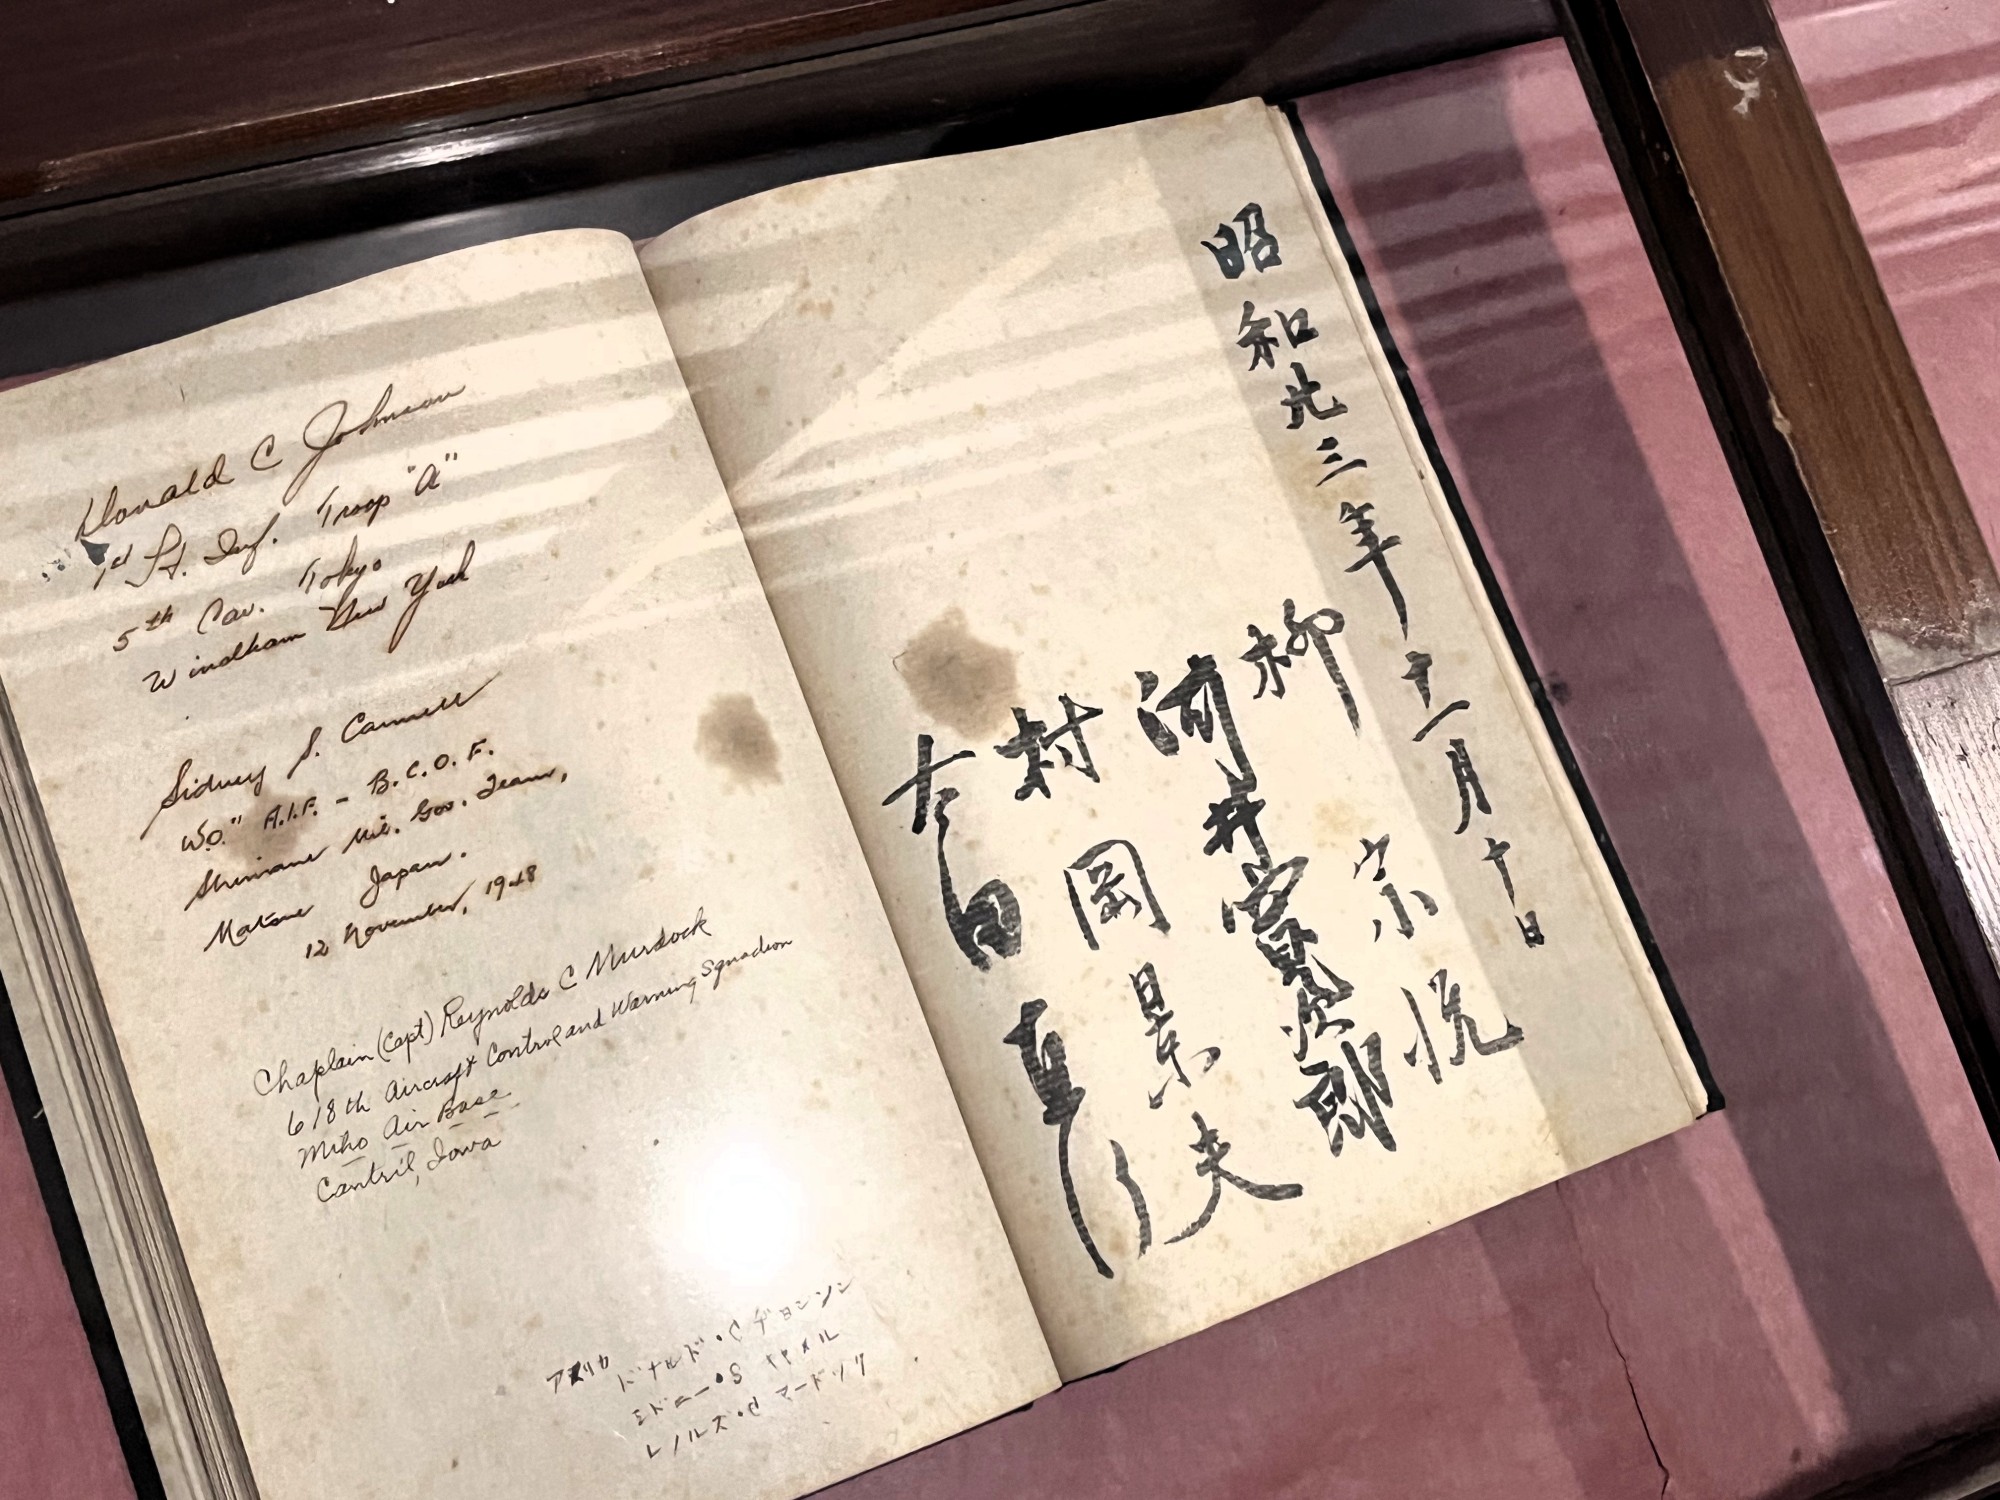 Donald C Johnson
1st Lt. Inf. Troop "A"
5th Cav. Tokyo
Windham New York
Sidney S.
W.O." A.I.F. - B.C.O.F.
Shimane Mil. Gov. Team,
Matsue Japan.
12 November, 1948
Chaplain (Capt) Reynolds C Murdock
618th Aircraft Control and Warning Squadron
Miho Air Base
Cantril, Iowa
アメリカ ドナルド・C ヂョンソン
シドニー・S カメル
レノルズ・C マードック
昭和廿三年十一月十日
柳 宗悦
河井寛次郎
村岡景夫
吉田